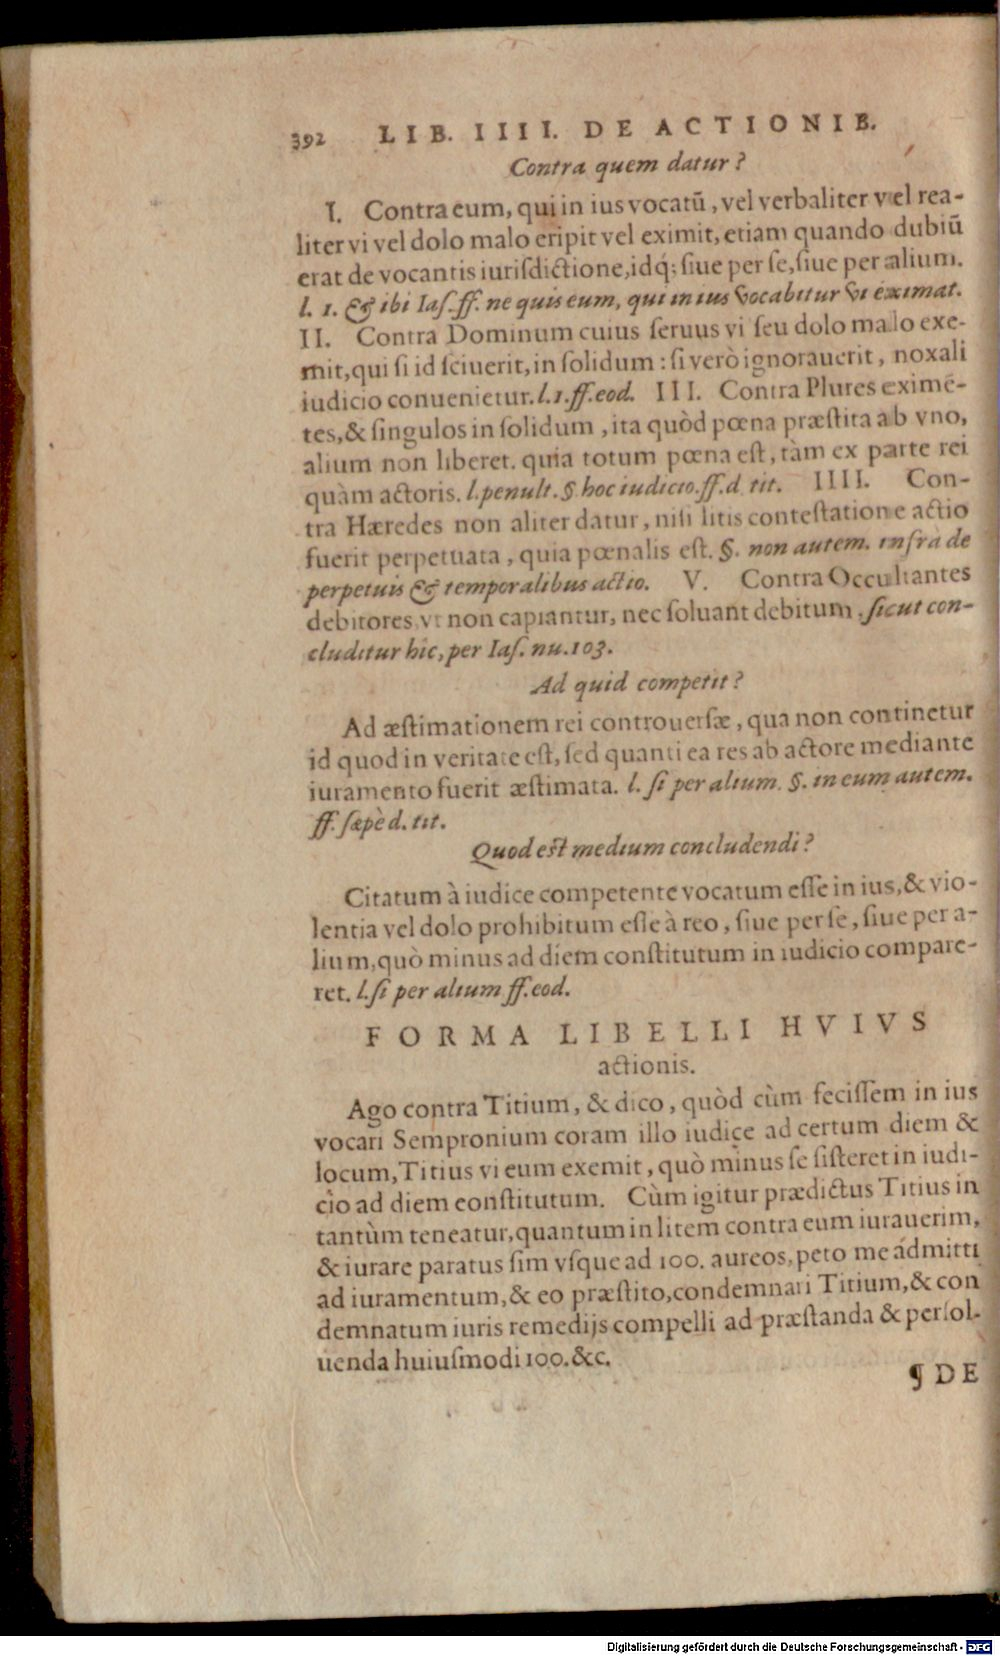 392 LIB. IIII. DE ACTIONIB.
Contra quem datur?
I. Contra eum, qui in ius vocatū, vel verbaliter vel rea-
liter vi vel dolo malo eripit vel eximit, etiam quando dubiū
erat de vocantis iurisdictione, idq́; siue per se, siue per alium.
l. 1. & ibi Ias. ff. ne quis eum, qui in ius vocabitur vi eximat.
II. Contra Dominum cuius seruus vi seu dolo malo exe-
mit, qui si id sciuerit, in solidum: si verò ignorauerit, noxali
iudicio conuenietur. l.1. ff. eod. III. Contra Plures eximē-
tes, & singulos in solidum, ita quòd pœna præstita ab vno,
alium non liberet. quia totum pœna est, tàm ex parte rei
quàm actoris. l. penult. §. hoc iudicio. ff. d. tit. IIII. Con-
tra Hæredes non aliter datur, nisi litis contestatione actio
fuerit perpetuata, quia pœnalis est. §. non autem. infrà de
perpetuis & temporalibus actio. V. Contra Occultantes
debitores vt non capiantur, nec soluant debitum, sicut con-
cluditur hic, per Ias. nu. 103.
Ad quid competit?
Ad æstimationem rei controuersæ, qua non continetur
id quod in veritate est, sed quanti ea res ab actore mediante
iuramento fuerit æstimata. l. si per alium. §. in eum autem.
ff. sæpè d. tit.
Quod est medium concludendi?
Citatum à iudice competente vocatum esse in ius, & vio-
lentia vel dolo prohibitum esse à reo, siue per se, siue per a-
lium, quò minus ad diem constitutum in iudicio compare-
ret. l. si per alium ff. eod.
FORMA LIBELLI HVIVS
actionis.
Ago contra Titium, & dico, quòd cùm fecissem in ius
vocari Sempronium coram illo iudice ad certum diem &
locum, Titius vi eum exemit, quò minus se sisteret in iudi-
cio ad diem constitutum. Cùm igitur prædictus Titius in
tantùm teneatur, quantum in litem contra eum iurauerim,
& iurare paratus sim vsque ad 100. aureos, peto me admitti
ad iuramentum, & eo præstito, condemnari Titium, & con
demnatum iuris remedijs compelli ad præstanda & persol-
uenda huiusmodi 100. &c.
¶ DE
Digitalisierung gefördert durch die Deutsche Forschungsgemeinschaft - DFG